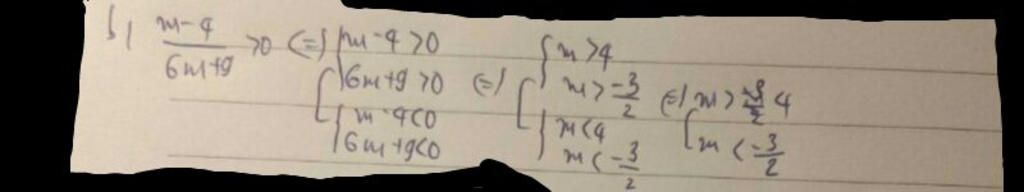 b) (m-4)/(6m+9) >0 <=> [ { m-4>0 ; 6m+9>0 [ { m-4<0 ; 6m+9<0 <=> [ { m>4 ; m>-3/2 [ { m<4 ; m<-3/2 <=> [ m> 4 ; m<-3/2